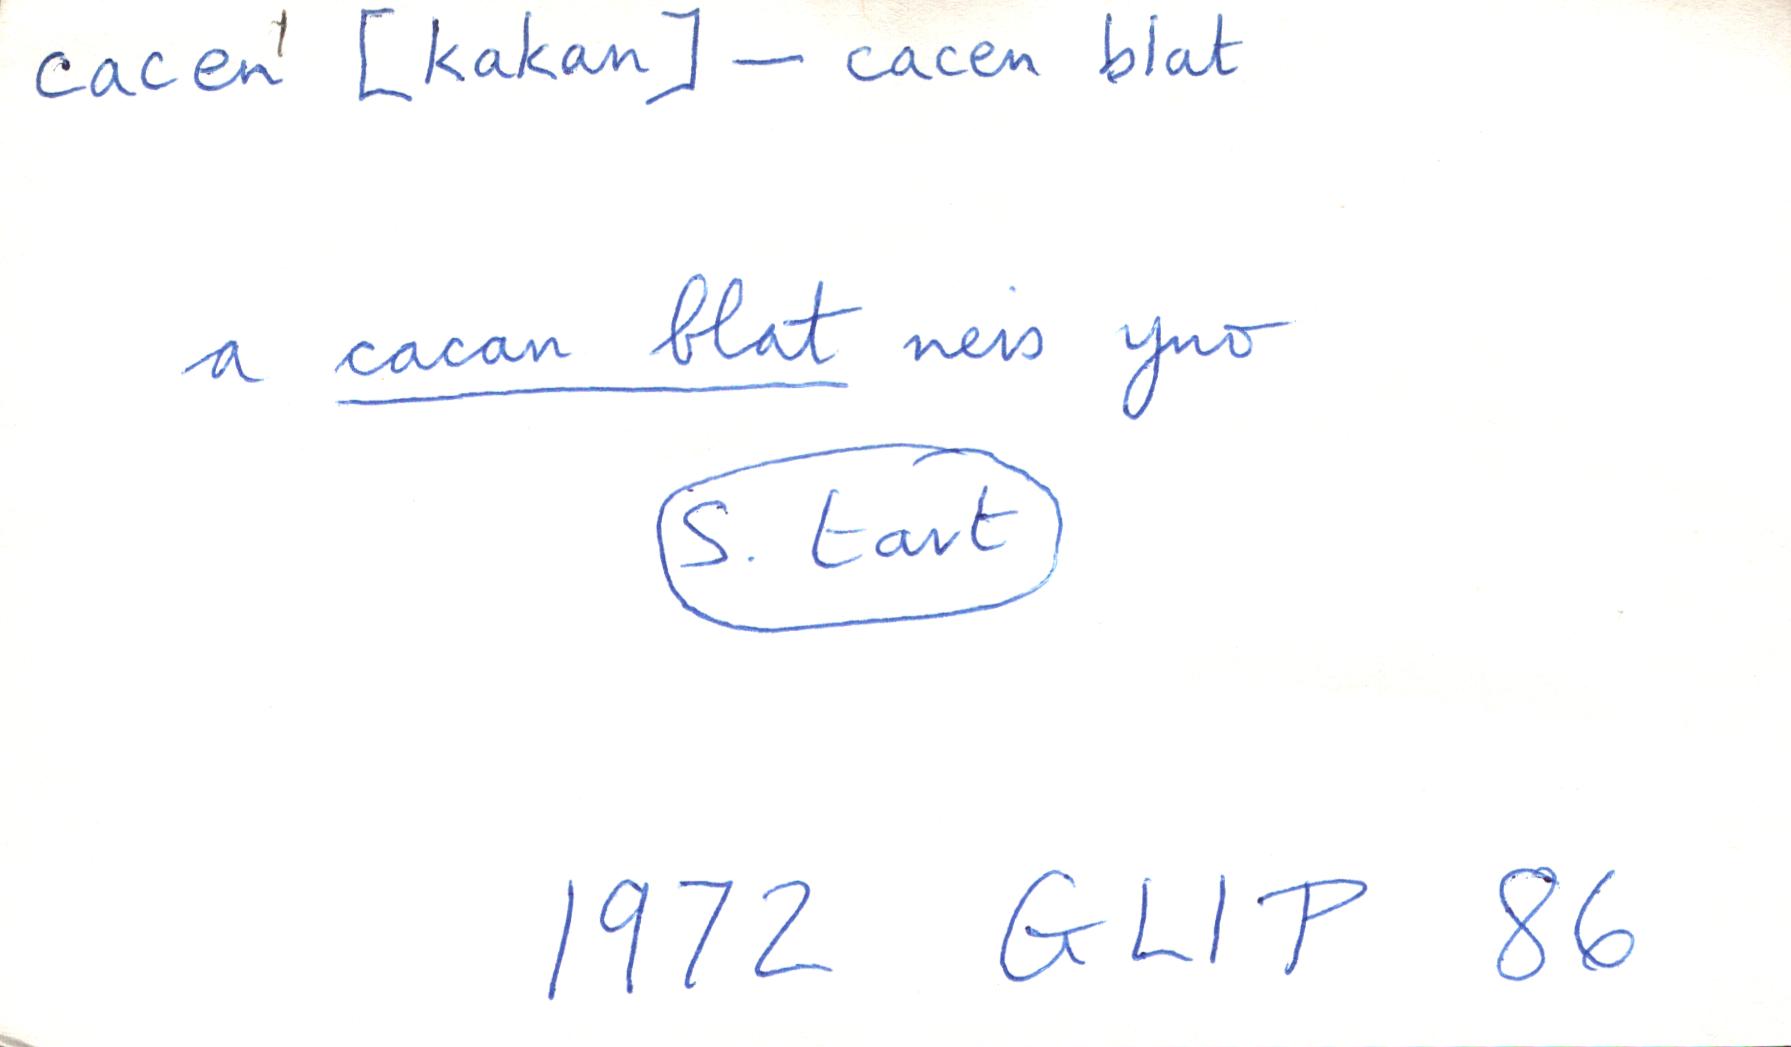 cacen¹ [kakan] — cacen blat
a cacan blat neis yno
S. tart
1972 GLIP 86